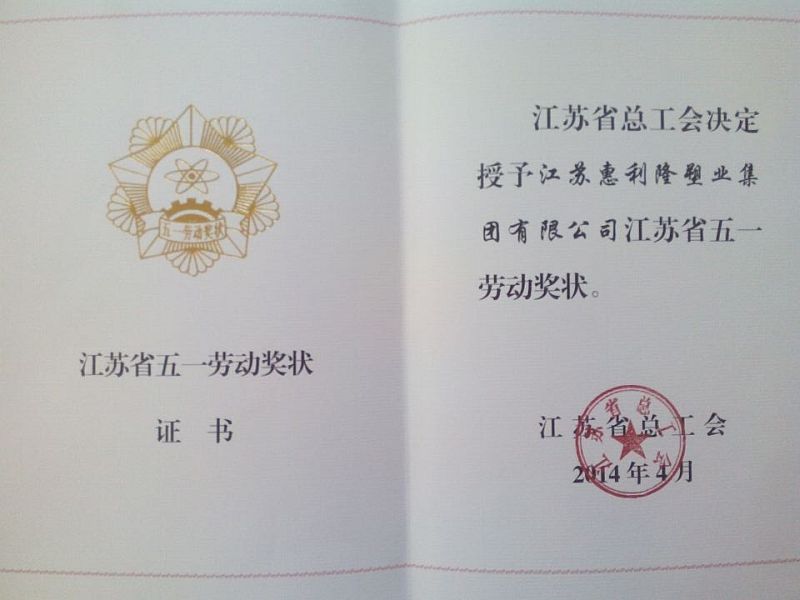 五一劳动奖状
江苏省五一劳动奖状
证书
江苏省总工会决定
授予江苏惠利隆塑业集
团有限公司江苏省五一
劳动奖状。
江苏省总工会
2014年4月
江苏省总工会